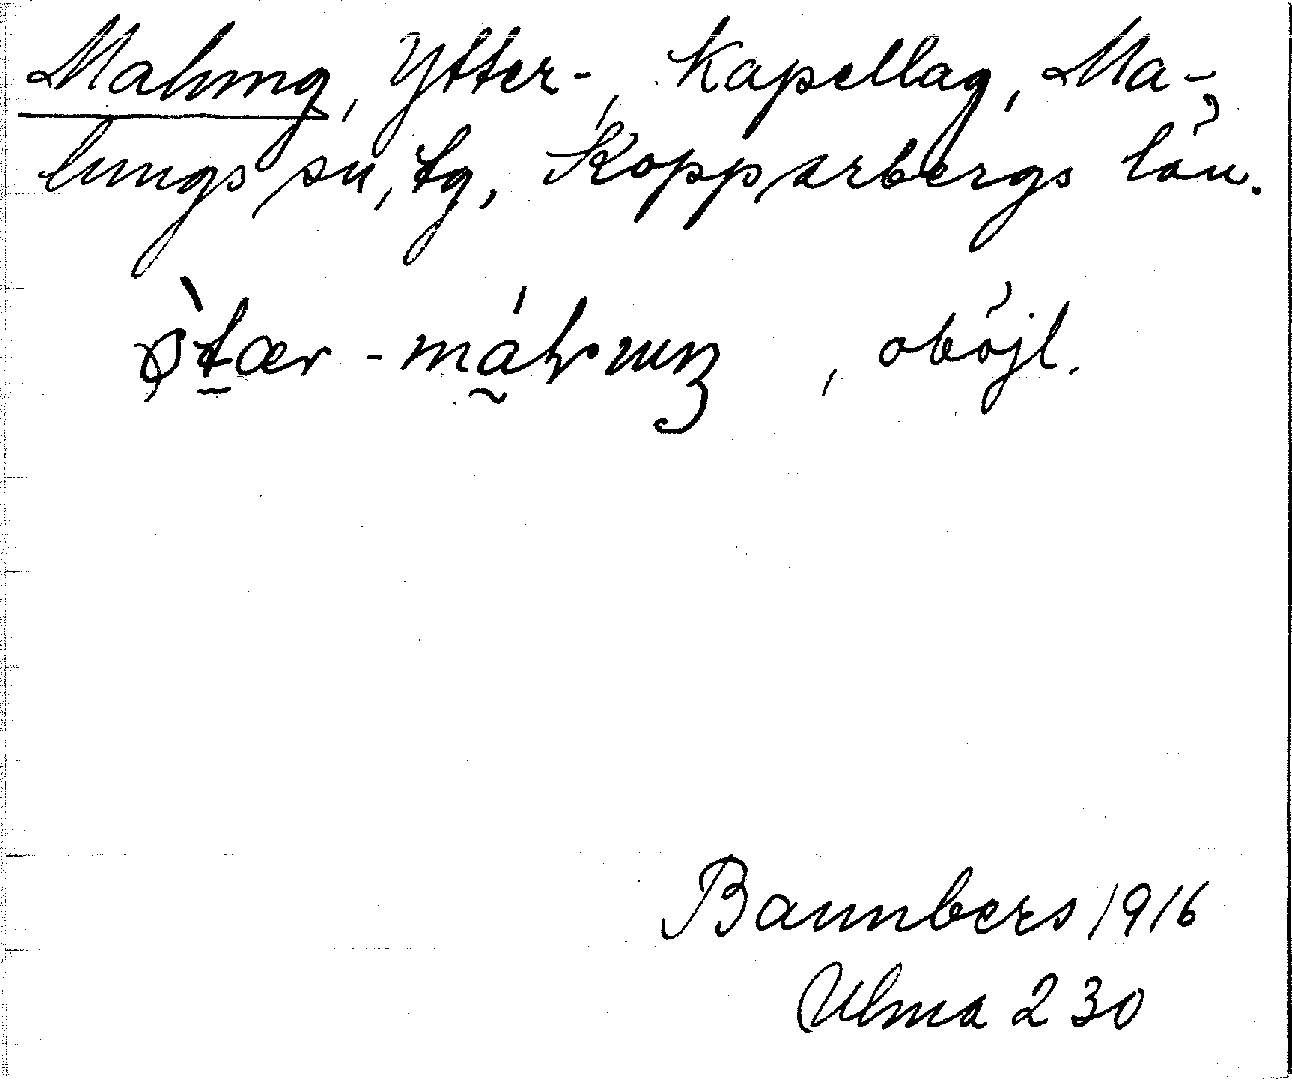 Malung, Ytter-, Kapellag, Ma-
lungs sn, tg, Kopparbergs län.
ø̀tær-máluŋ, oböjl.
Bannbers 1916
Ulma 230